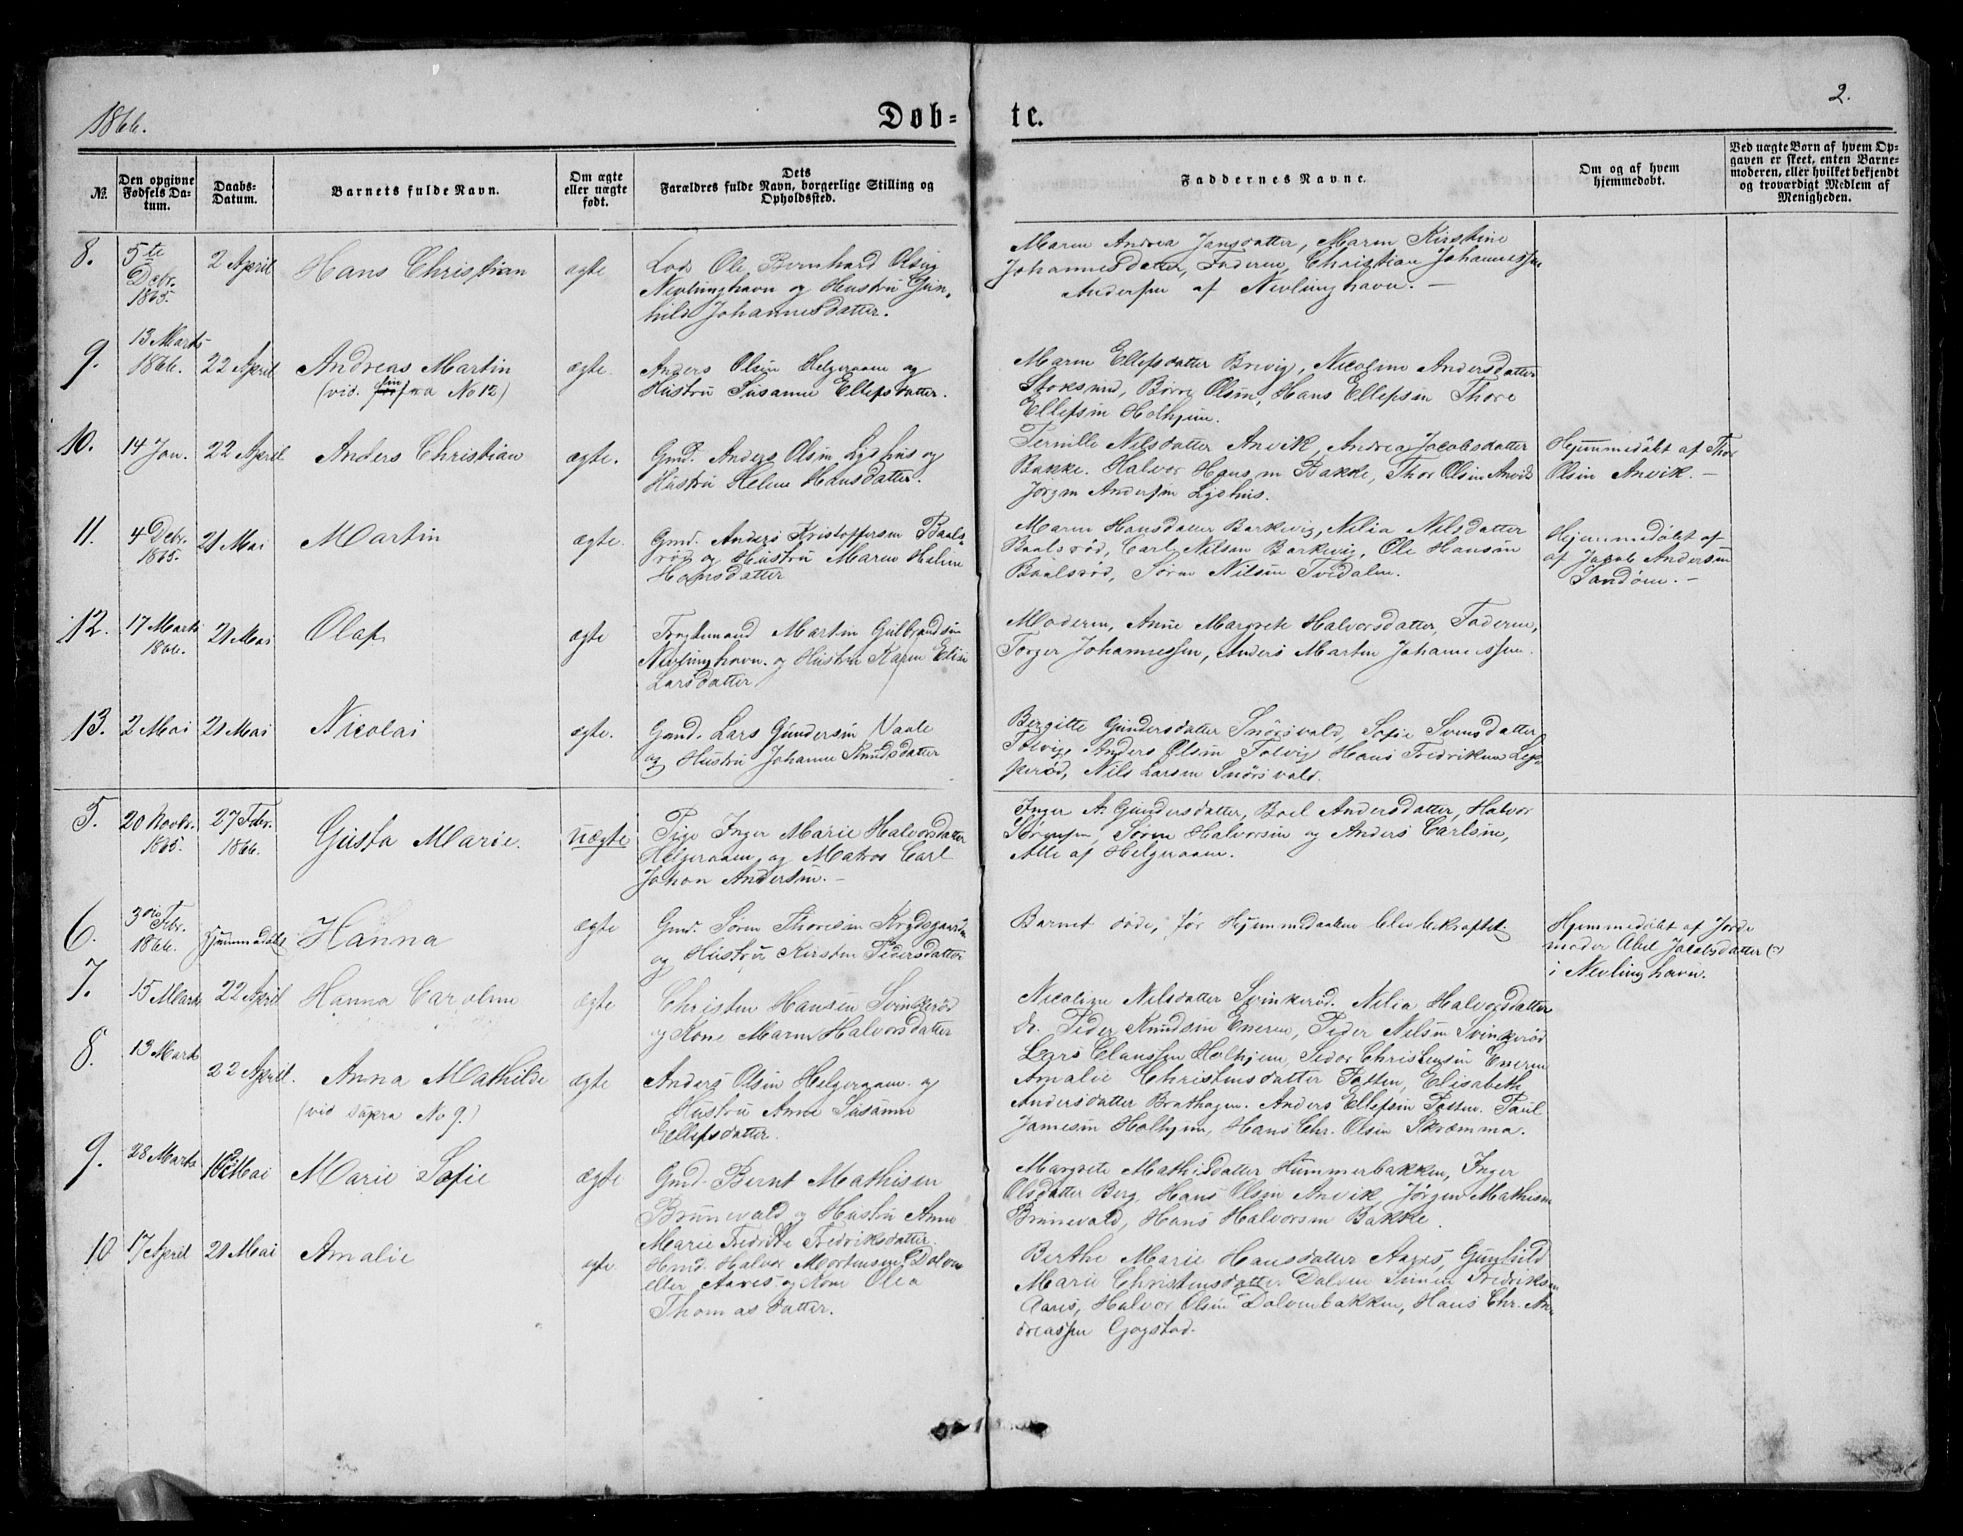 1866.
Døb-
te.
2.
№.
Den opgivne Fødsels Datum.
Daabs-Datum.
Barnets fulde Navn.
Om ægte eller uægte født.
Dets Forældres fulde Navn, borgerlige Stilling og Opholdssted.
Faddernes Navne.
Om og af hvem hjemmedøbt.
Ved uægte Børn af hvem Opgaven er skeet, enten Barnemoderen, eller hvilket bekjendt og troværdigt Medlem af Menigheden.
8.
5te Debr. 1865.
2 April
Hans Christian
ægte
Lods Ole Bernhard Olsen
Nevlunghavn og Hustru Gun-
hild Johannesdatter.
Maren Andrea Jansdatter, Maren Kirstine
Johannesdatter, Faderen, Christian Johannessen
Andersen af Nevlunghavn. —
9.
13 Marts 1866.
22 April
Andreas Martin
(vid. infra No 12)
ægte.
Anders Olsen Helgeraaen og
Hustru Susanne Ellefsdatter.
Maren Ellefsdatter Brevig, Nicoline Andersdatter
Stoksund, Børre Olsen, Hans Ellefsen Thore
Ellefsen Holhjem.
10.
14 Jan.
22 April
Anders Christian
ægte.
Gmd. Anders Olsen Lyshus og
Hustru Helene Hansdatter.
Pernille Nilsdatter Anvik, Andrea Jacobsdatter
Bakke. Halvor Hansen Bakke, Thor Olsen Anvik
Jørgen Andersen Lyshus.
Hjemmedøbt af Thor
Olsen Anvik. —
11.
4 Debr. 1865.
21 Mai
Martin
ægte.
Gmd. Anders Kristoffersen Baals-
rød og Hustru Maren Helene
Hansdatter
Maren Hansdatter Barkevig, Nilia Nilsdatter
Baalsrød, Carl Nilsen Barkevig, Ole Hansen
Baalsrød, Søren Nilsen Tvedalen.
Hjemmedøbt af
af Jacob Andersen
Sandøen. —
12.
17 Marts 1866.
21 Mai
Olaf
ægte
Fragtemand Martin Gulbrandsen
Nevlunghavn. og Hustru Karen Elise
Larsdatter
Moderen, Anne Margrete Halvorsdatter, Faderen,
Torger Johannessen, Anders Martin Johannessen.
13.
2 Mai
21 Mai
Nicolai
ægte.
Gmd. Lars Gundersen Vaale
og Hustru Johanne Knudsdatter
Bergitte Gundersdatter Snørsvald, Sofie Svensdatter
Tolvig, Anders Olsen Tolvig Hans Fredriksen Lep-
perød, Nils Larsen Snørsvald.
5.
20 Novbr. 1865.
27 Febr. 1866.
Gusta Marie.
uægte
Pige Inger Marie Halvorsdatter
Helgeraaen og Matros Carl
Johan Andersen. —
Inger A. Gundersdatter, Boel Andersdatter, Halvor
Søren Halvorsen og Anders Carlsen,
Alle af Helgeraaen.
6.
3die Febr. 1866.
Hjemmedøbt
Hanna
ægte
Gmd. Søren Thoresen Krydsgaarden
og Hustru Kirsten Pedersdatter
Barnet døde, før Hjemmedaaben blev bekræftet.
Hjemmedøbt af Jorde
moder Abel Jacobsdatter
i Nevlinghavn.
7.
15 Marts
22 April
Hanna Caroline
ægte
Christen Hansen Svinkerød
og Kone Maren Halvorsdatter
Nicoline Nilsdatter Svinkerød. Nilia Halvorsdatter
do. Peder Knudsen Eneren, Peder Nilsen Svinkerød
Lars Claussen Holhjem, Peder Christensen Eneren
8.
13 Marts
22 April.
Anna Mathilde
(vid supra No 9.)
ægte
Anders Olsen Helgeraaen. og
Hustru Anne Susanne
Ellefsdatter.
Amalie Christensdatter Patten, Elisabeth
Andersdatter Brathagen. Anders Ellefsen Patten. Paul
Jamesen Holhjem, Hans Chr. Olsen Skræmma.
9.
28 Marts
Mai
Marie Sofie
ægte
Gmd. Bernt Mathisen
Brunevald og Hustru Anne
Marie Fredrikke Fredriksdatter
Margrete Mathisdatter Hummerbakken, Inger
Olsdatter Berg, Hans Olsen Anvik, Jørgen Mathisen
Brunevald, Hans Halvorsen Bakke.
10
17 April
21 Mai
Amalie
ægte
Hmd. Halvor Mortensen Dolven
eller Aarøs og Kone Olea
Thomasdatter.
Berthe Marie Hansdatter Aarøs, Gunhild
Marie Christensdatter Dolven Simen Fredriksen
Aarøs, Halvor Olsen Dolvenbakken, Hans Chr. An-
dreassen Gogstad.